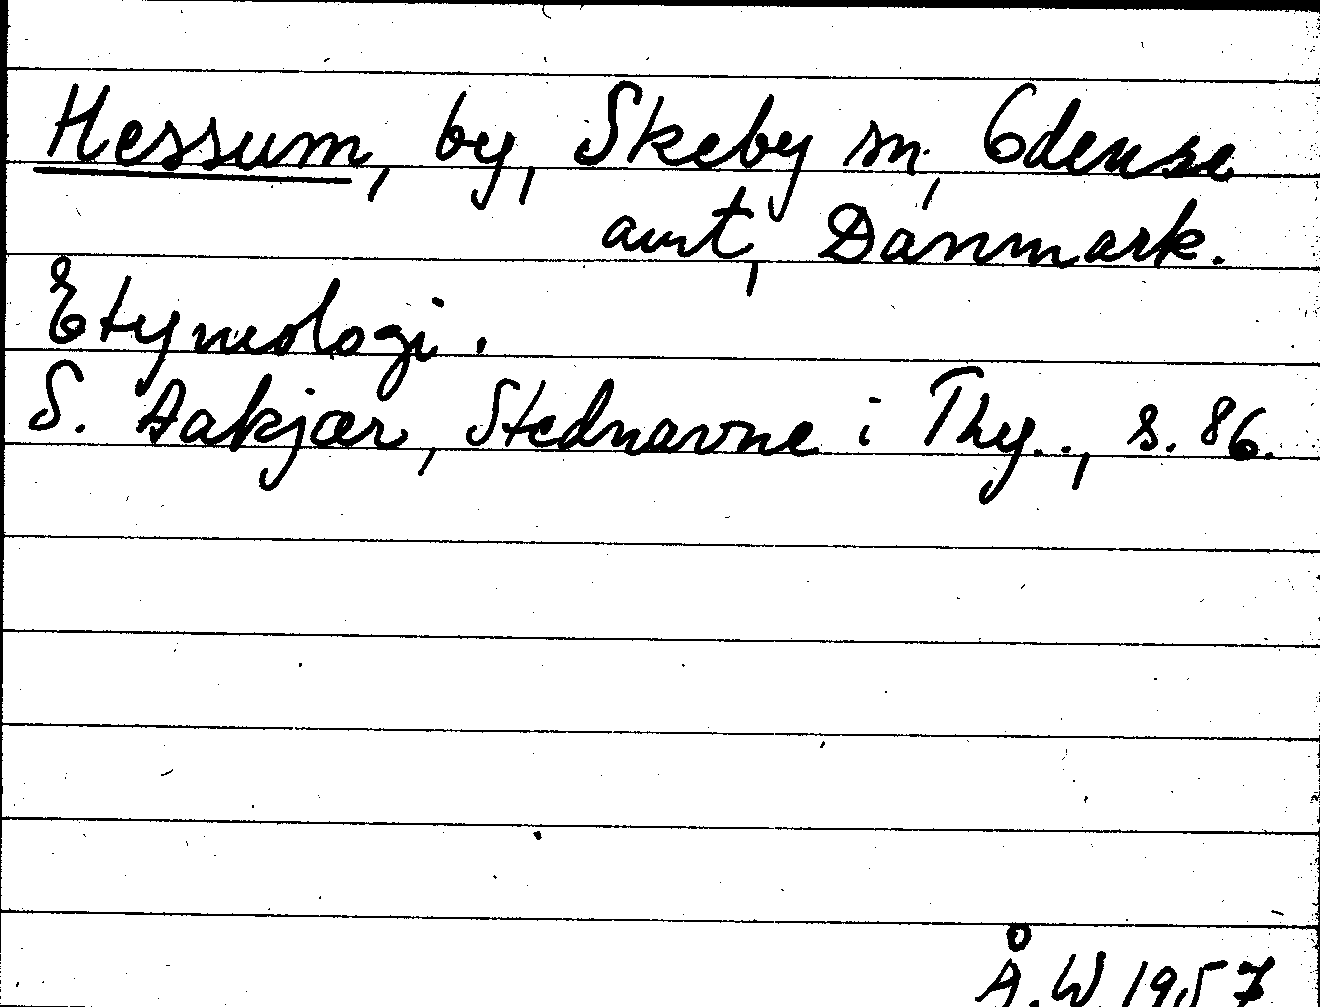 Hessum, by, Skeby sn, Odense
amt, Danmark.
Etymologi.
S. Aakjær, Stednavne i Thy.., s. 86.
Å.W 1957